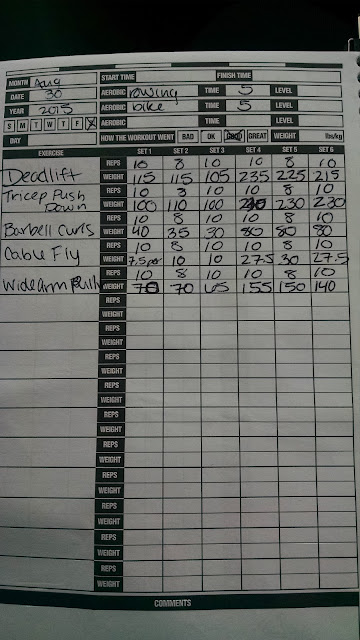 MONTH Aug START TIME FINISH TIME
DATE 30 AEROBIC rowing TIME 5 LEVEL
YEAR 2015 AEROBIC bike TIME 5 LEVEL
S M T W T F AEROBIC TIME LEVEL
DAY HOW THE WORKOUT WENT BAD OK GOOD GREAT WEIGHT lbs/kg
EXERCISE SET 1 SET 2 SET 3 SET 4 SET 5 SET 6
REPS 10 8 10 10 8 10
Deadlift WEIGHT 115 115 105 235 225 215
Tricep Push REPS 10 8 10 10 8 10
Down WEIGHT 100 110 100 230 230
REPS 10 8 10 10 8 10
Barbell Curls WEIGHT 40 35 30 80 80 80
REPS 10 8 10 10 8 10
Cable Fly WEIGHT 7.5 per 10 10 27.5 30 27.5
REPS 10 8 10 10 8 10
Wide arm Pull WEIGHT 70 70 65 155 150 140
REPS
WEIGHT
REPS
WEIGHT
REPS
WEIGHT
REPS
WEIGHT
REPS
WEIGHT
REPS
WEIGHT
REPS
WEIGHT
REPS
WEIGHT
REPS
WEIGHT
REPS
WEIGHT
COMMENTS